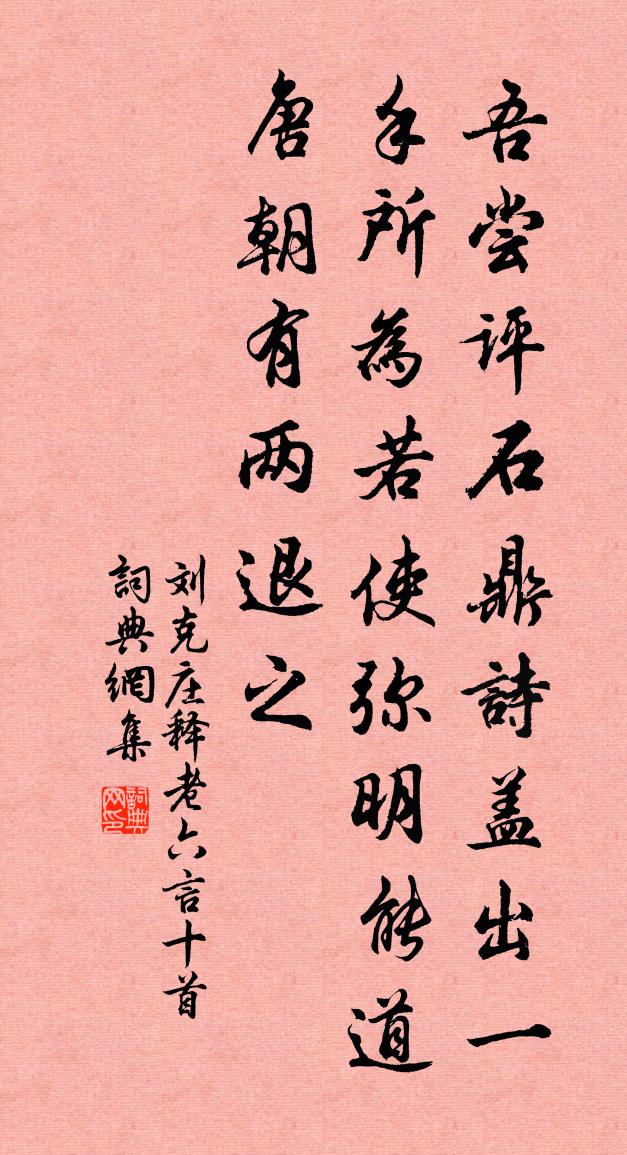 吾尝评石鼎詩盖出一
手所為若使弥明能道
唐朝有两退之
刘克庄释老六言十首
詞典網集
詞典網印